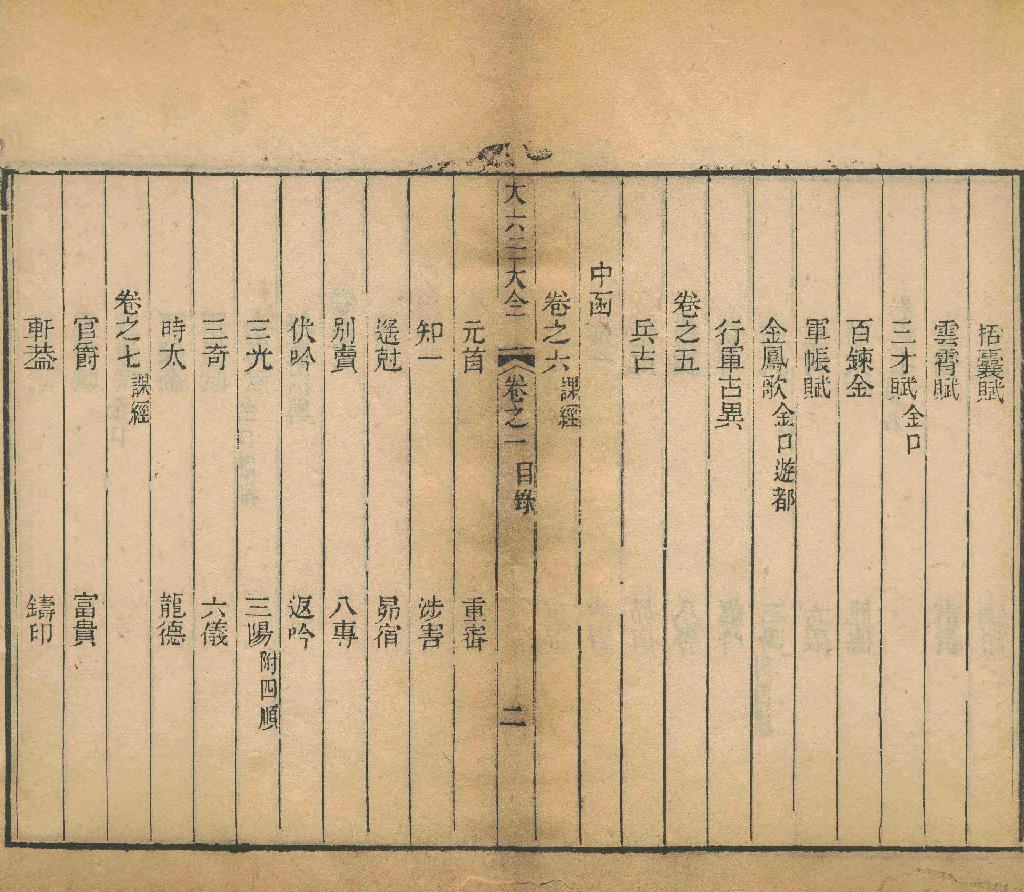 括囊賦
雲霄賦
三才賦 金口
百鍊金
軍帳賦
金鳳歌 金口遊都
行軍占異
卷之五
兵占
中函
卷之六 課經
大六壬大全 卷之一 目錄 二
元首 重審
知一 涉害
遥尅 昴宿
別責 八專
伏吟 返吟
三光 三陽 附四順
三奇 六儀
時太 龍德
卷之七 課經
官爵 富貴
軒葢 鑄印